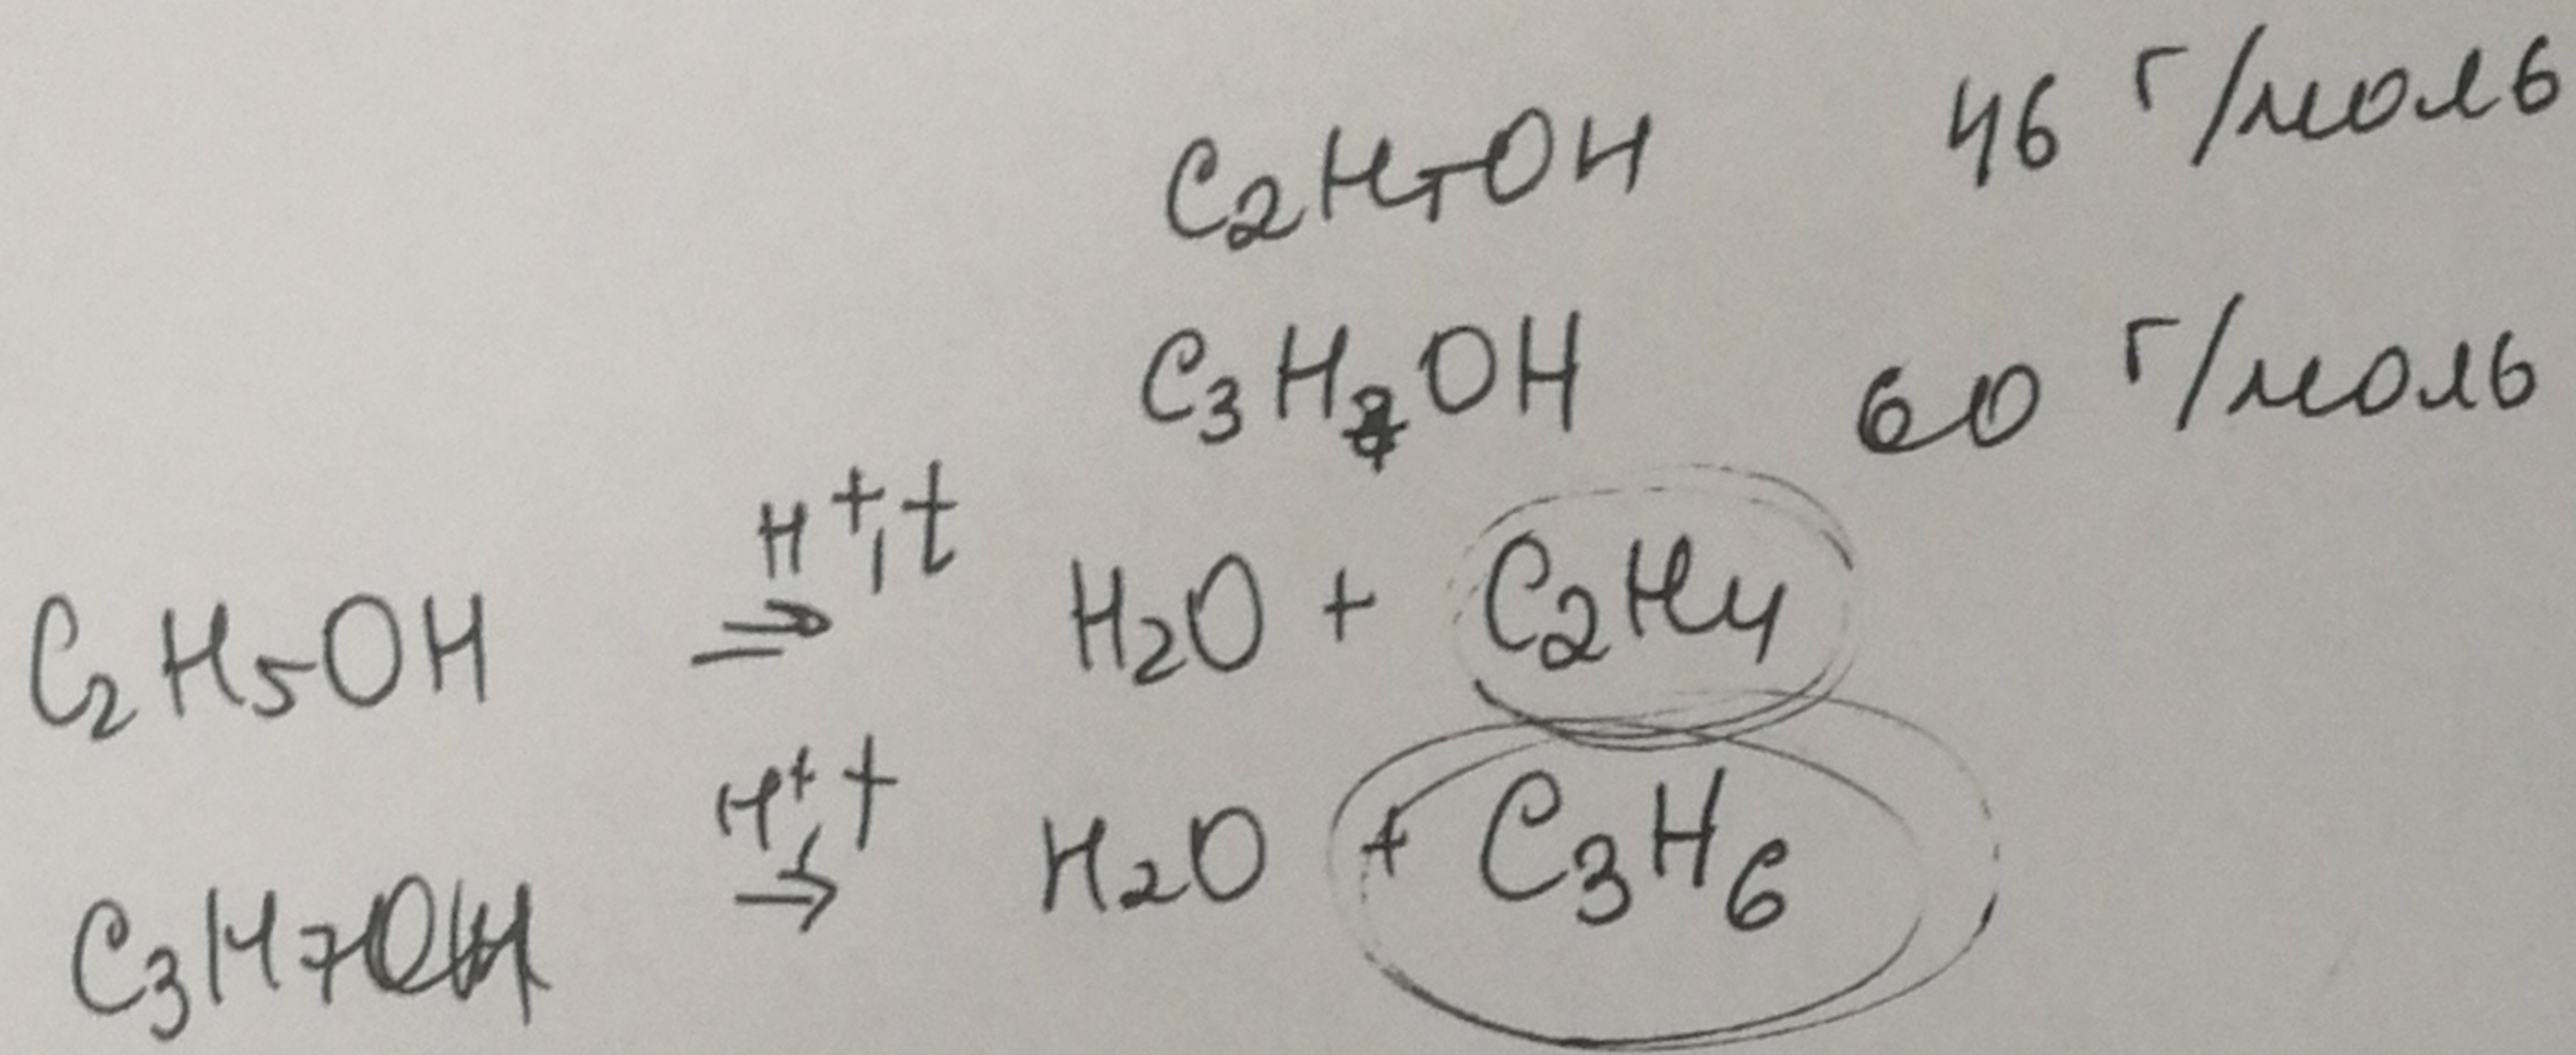 C₂H₅OH 46 г/моль
C₃H₇OH 60 г/моль
C₂H₅OH H⁺, t ⇒ H₂O + C₂H₄
C₃H₇OH H⁺, t → H₂O + C₃H₆